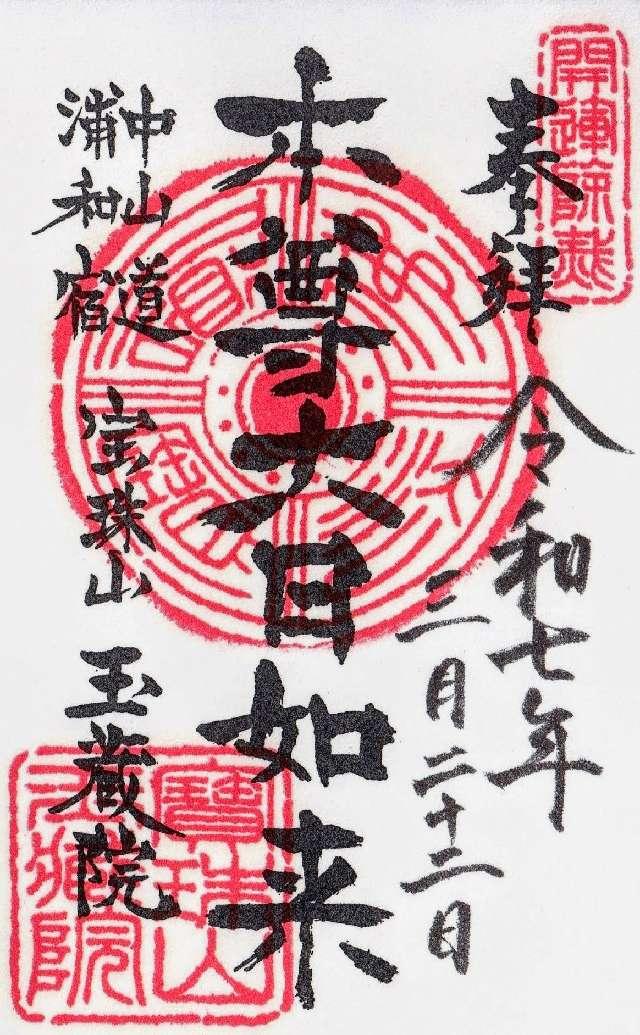 開運
奉拝
令和七年
三月二十二日
本尊大日如来
中山道
浦和宿
宝珠山
玉蔵院
寶珠山
玉蔵院